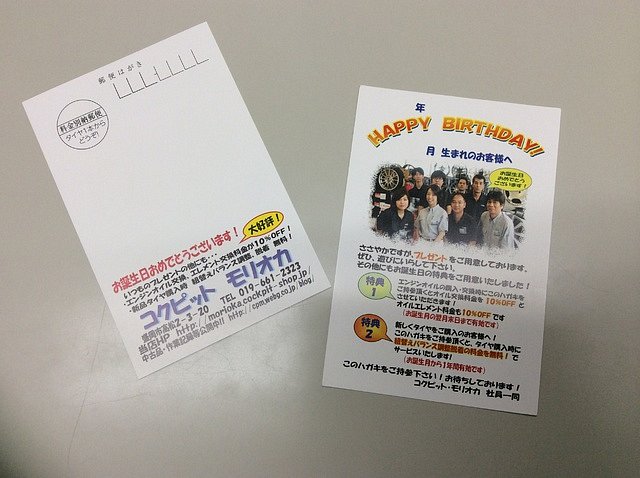 郵便はがき
料金別納郵便
タイヤ1本から
どうぞ!
お誕生日おめでとうございます!
大好評!
いつものプレゼントの他にも・・・
・エンジンオイル交換、エレメント交換料金が10%OFF!
・新品タイヤ購入時 組替え バランス調整、脱着 無料!
コクピット モリオカ
盛岡市高松2-3-20 TEL 019-661-2323
当店HP http://morioka.cockpit-shop.jp/
中古品・作業記録等公開中!! http://cpm.webg.co.jp/blog/
年
HAPPY BIRTHDAY!!
月 生まれのお客様へ
お誕生日
おめでとう
ございます!
ささやかですが、プレゼントをご用意しております。
ぜひ、遊びにいらして下さい。
その他にもお誕生日の特典をご用意いたしました!
特典
1
エンジンオイルの購入・交換時にこのハガキを
ご持参頂くとオイル交換料金を10%OFFと
させていただきます!
オイルエレメント料金も10%OFFです
(お誕生月の翌月末日まで有効です)
特典
2
新しくタイヤをご購入のお客様へ!
このハガキをご持参頂くと、タイヤ購入時に
組替えバランス調整脱着の料金を無料!で
サービスいたします!
(お誕生月から1年間有効です)
このハガキをご持参下さい!お待ちしております!
コクピット・モリオカ 社員一同